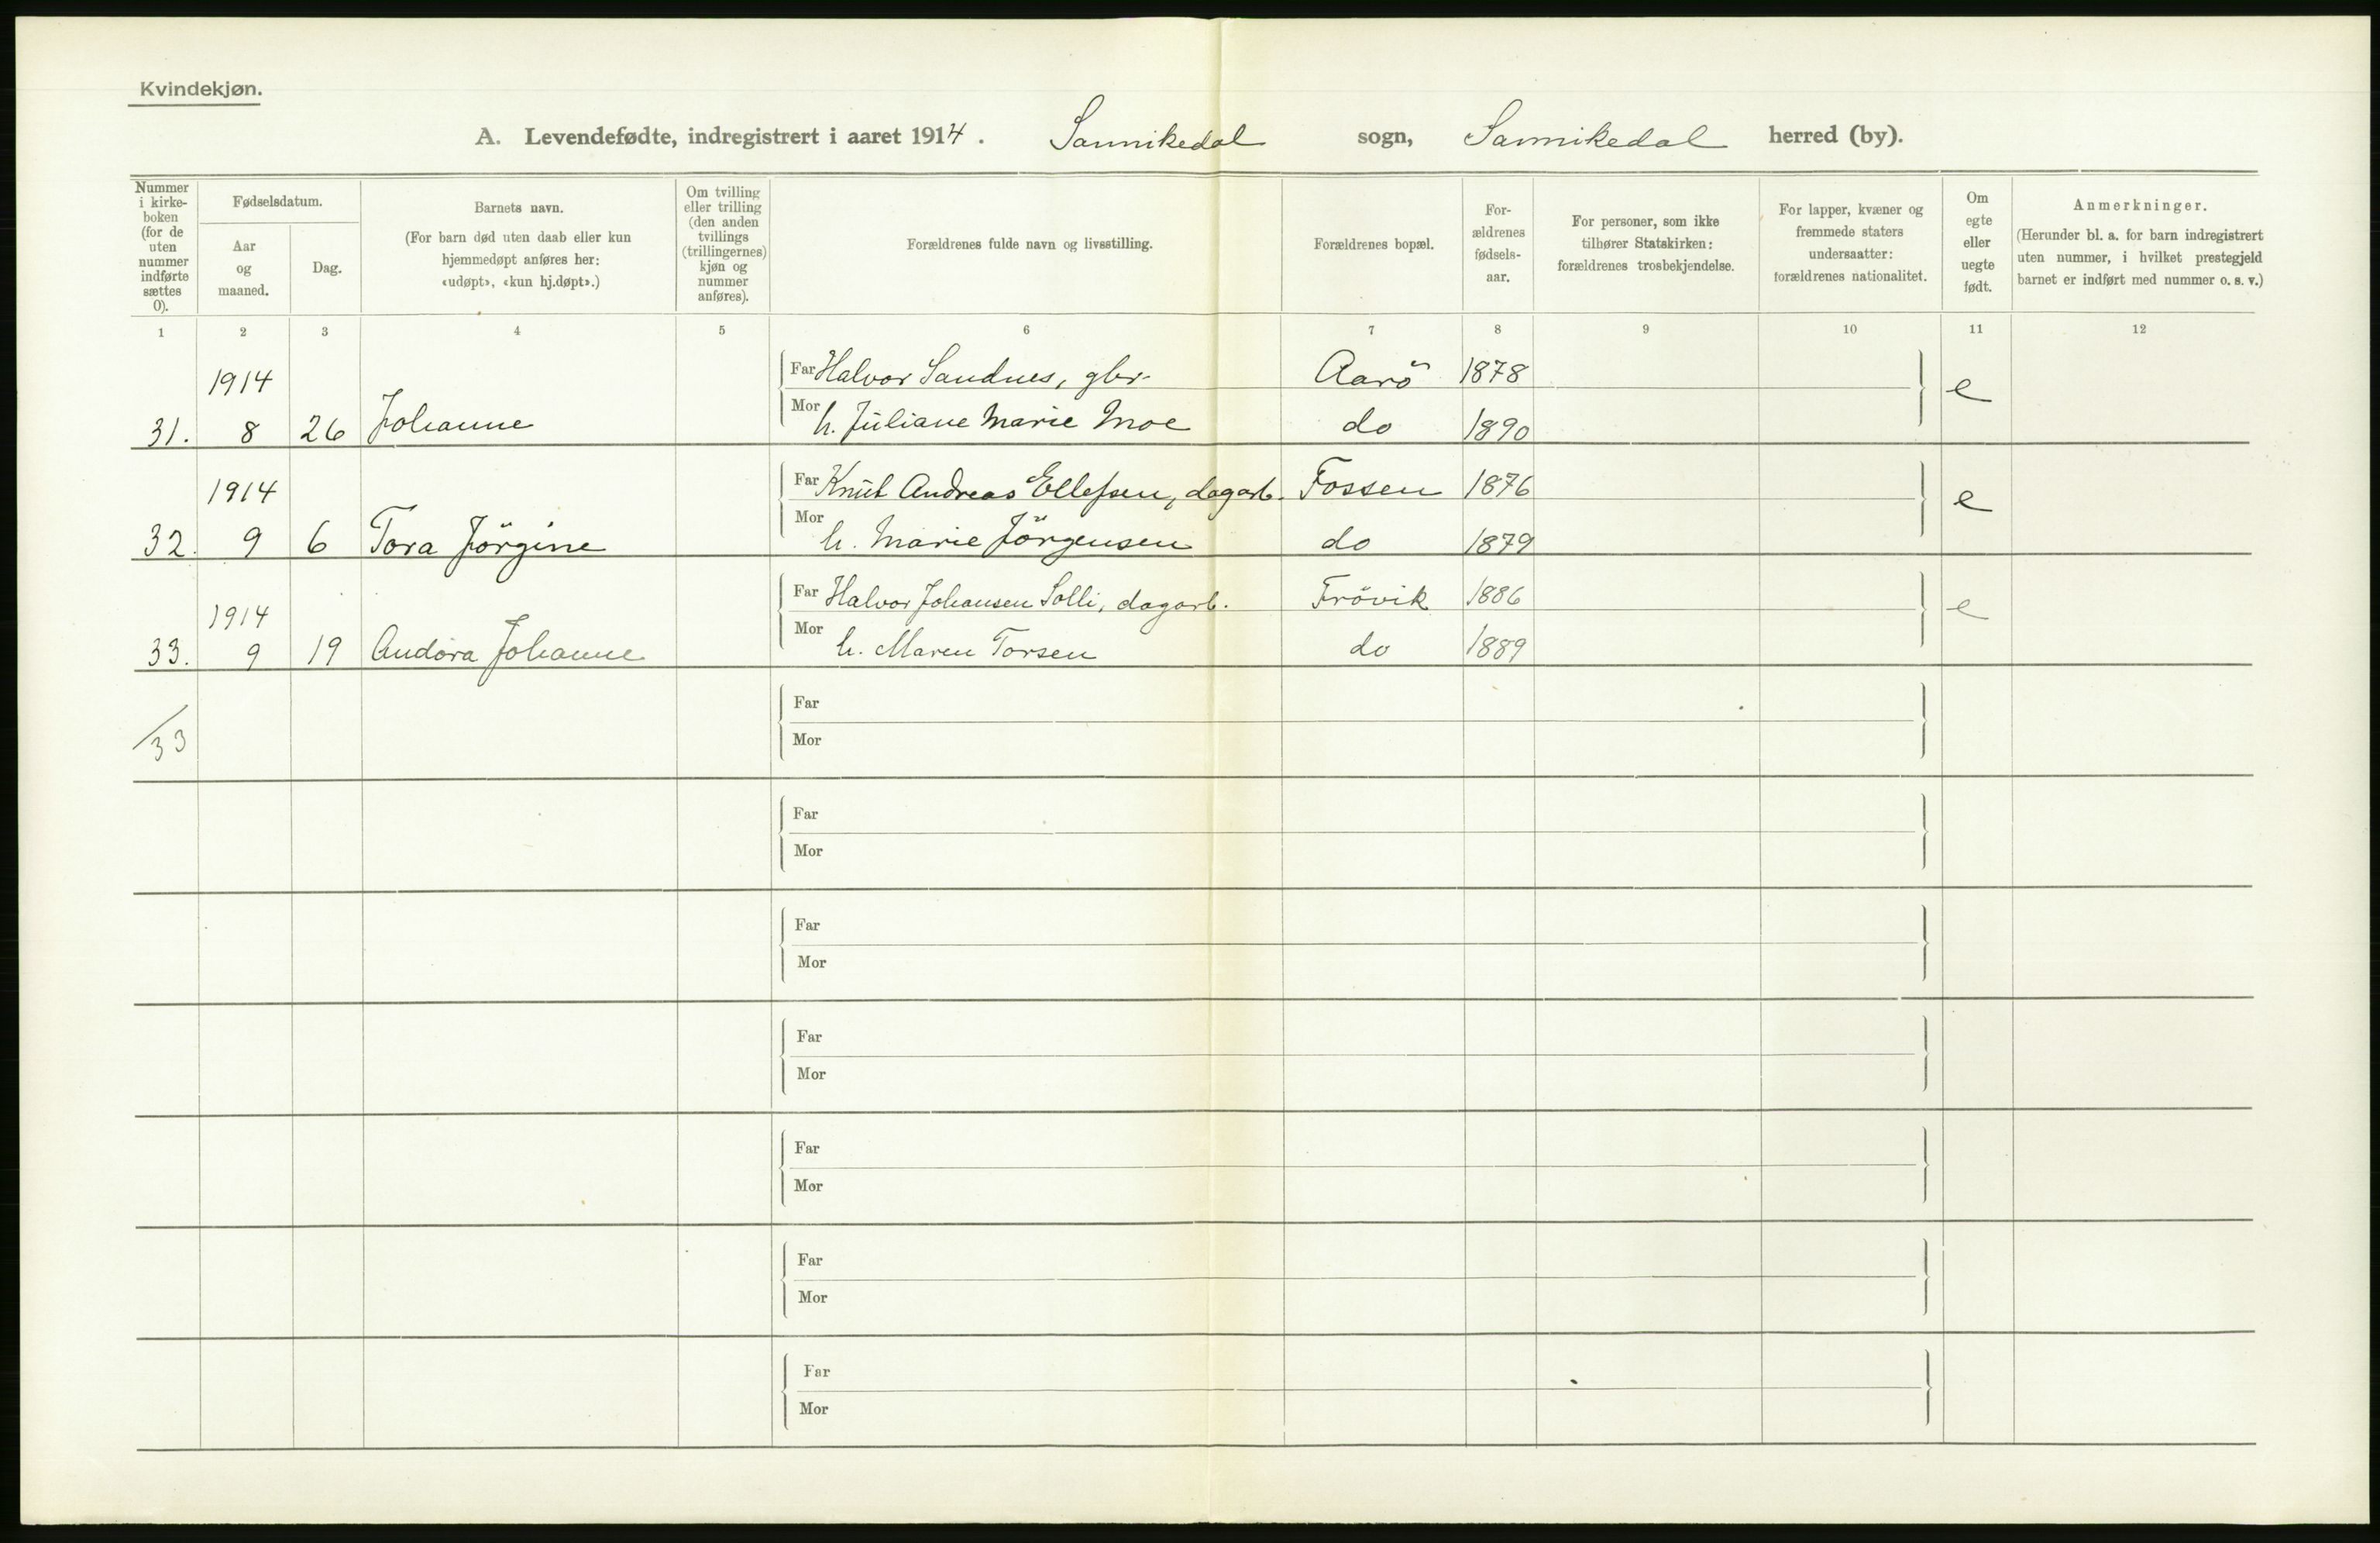 Kvindekjøn.
A. Levendefødte, indregistrert i aaret 1914. Sannikedal sogn, Sannikedal herred (by).
Nummer i kirke-boken (for de uten nummer indførte sættes 0).
Fødselsdatum.
Aar og maaned.
Dag.
Barnets navn.
(For barn død uten daab eller kun hjemmedøpt anføres her: «udøpt», «kun hj.døpt».)
Om tvilling eller trilling (den anden tvillings (trillingernes) kjøn og nummer anføres).
Forældrenes fulde navn og livsstilling.
Forældrenes bopæl.
For-ældrenes fødsels-aar.
For personer, som ikke tilhører Statskirken: forældrenes trosbekjendelse.
For lapper, kvæner og fremmede staters undersaatter: forældrenes nationalitet.
Om egte eller uegte født.
Anmerkninger.
(Herunder bl. a. for barn indregistrert uten nummer, i hvilket prestegjeld barnet er indført med nummer o. s. v.)
1 2 3 4 5 6 7 8 9 10 11 12
1914 Far Halvor Sandnes, gbr. Aarö 1878 e
31. 8 26 Johanne Mor h. Juliane Marie Moe do 1890
1914 Far Knut Andreas Ellefsen, dagarb. Fossen 1876 e
32. 9 6 Tora Jörgine Mor h. Marie Jörgensen do 1879
1914 Far Halvor Johansen Solli, dagarb. Frövik 1886 e
33. 9 19 Andora Johanne Mor h. Maren Torsen do 1889
Far
/33 Mor
Far
Mor
Far
Mor
Far
Mor
Far
Mor
Far
Mor
Far
Mor